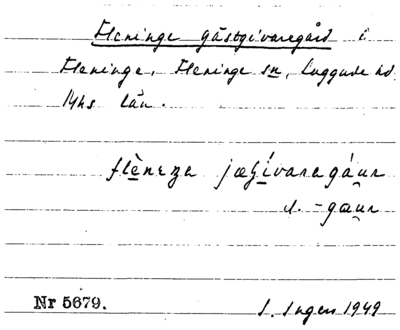 Fleninge gästgivaregård i
Fleninge, Fleninge sn, Luggude hd
Mhs län.
flèneŋe jæʂívaregáuɾ
l. -gæuɾ
Nr 5679.
S. Ingers 1949